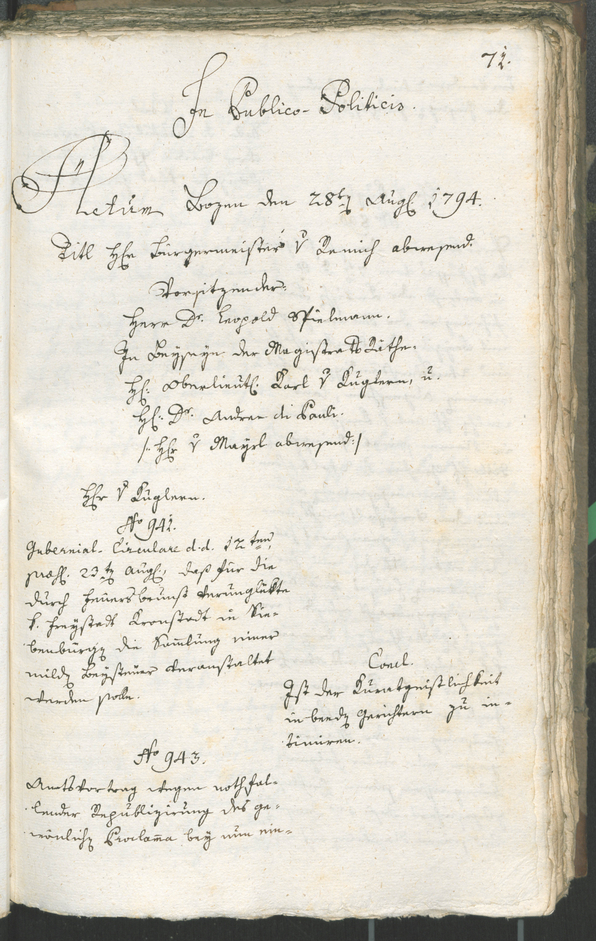 72.
In Publico-Politicis.
Actum Bozen den 28ten Augl. 1794.
Titl Hr Bürgermeister v Remich abwesend.
Vorsitzender:
Herr Dr. Leopold Spielmann.
In Beyseyn der Magistrats Räthe.
H: Oberlieut. Karl v Kuglern, u.
H: Dr. Andree di Pauli.
/: Hr v Mayrl abwesend:/
Hr v Kuglern.
No 942.
Gubernial-Circulare d.d. 12ten
praes. 23ten Augl, daß für die
durch Feuersbrunst verunglükte
k. Freystadt Kronstadt in Sie-
benbürgen die Sammlung einer
milden Beysteuer veranstaltet
werden solle.
Concl.
Ist der Kuratgeistlichkeit
in beeden Gerichtern zu in-
timiren.
No 943.
Amtsvortrag wegen nothfal-
lender Republizirung des ge-
wönlichen Proclama bey nun ein-